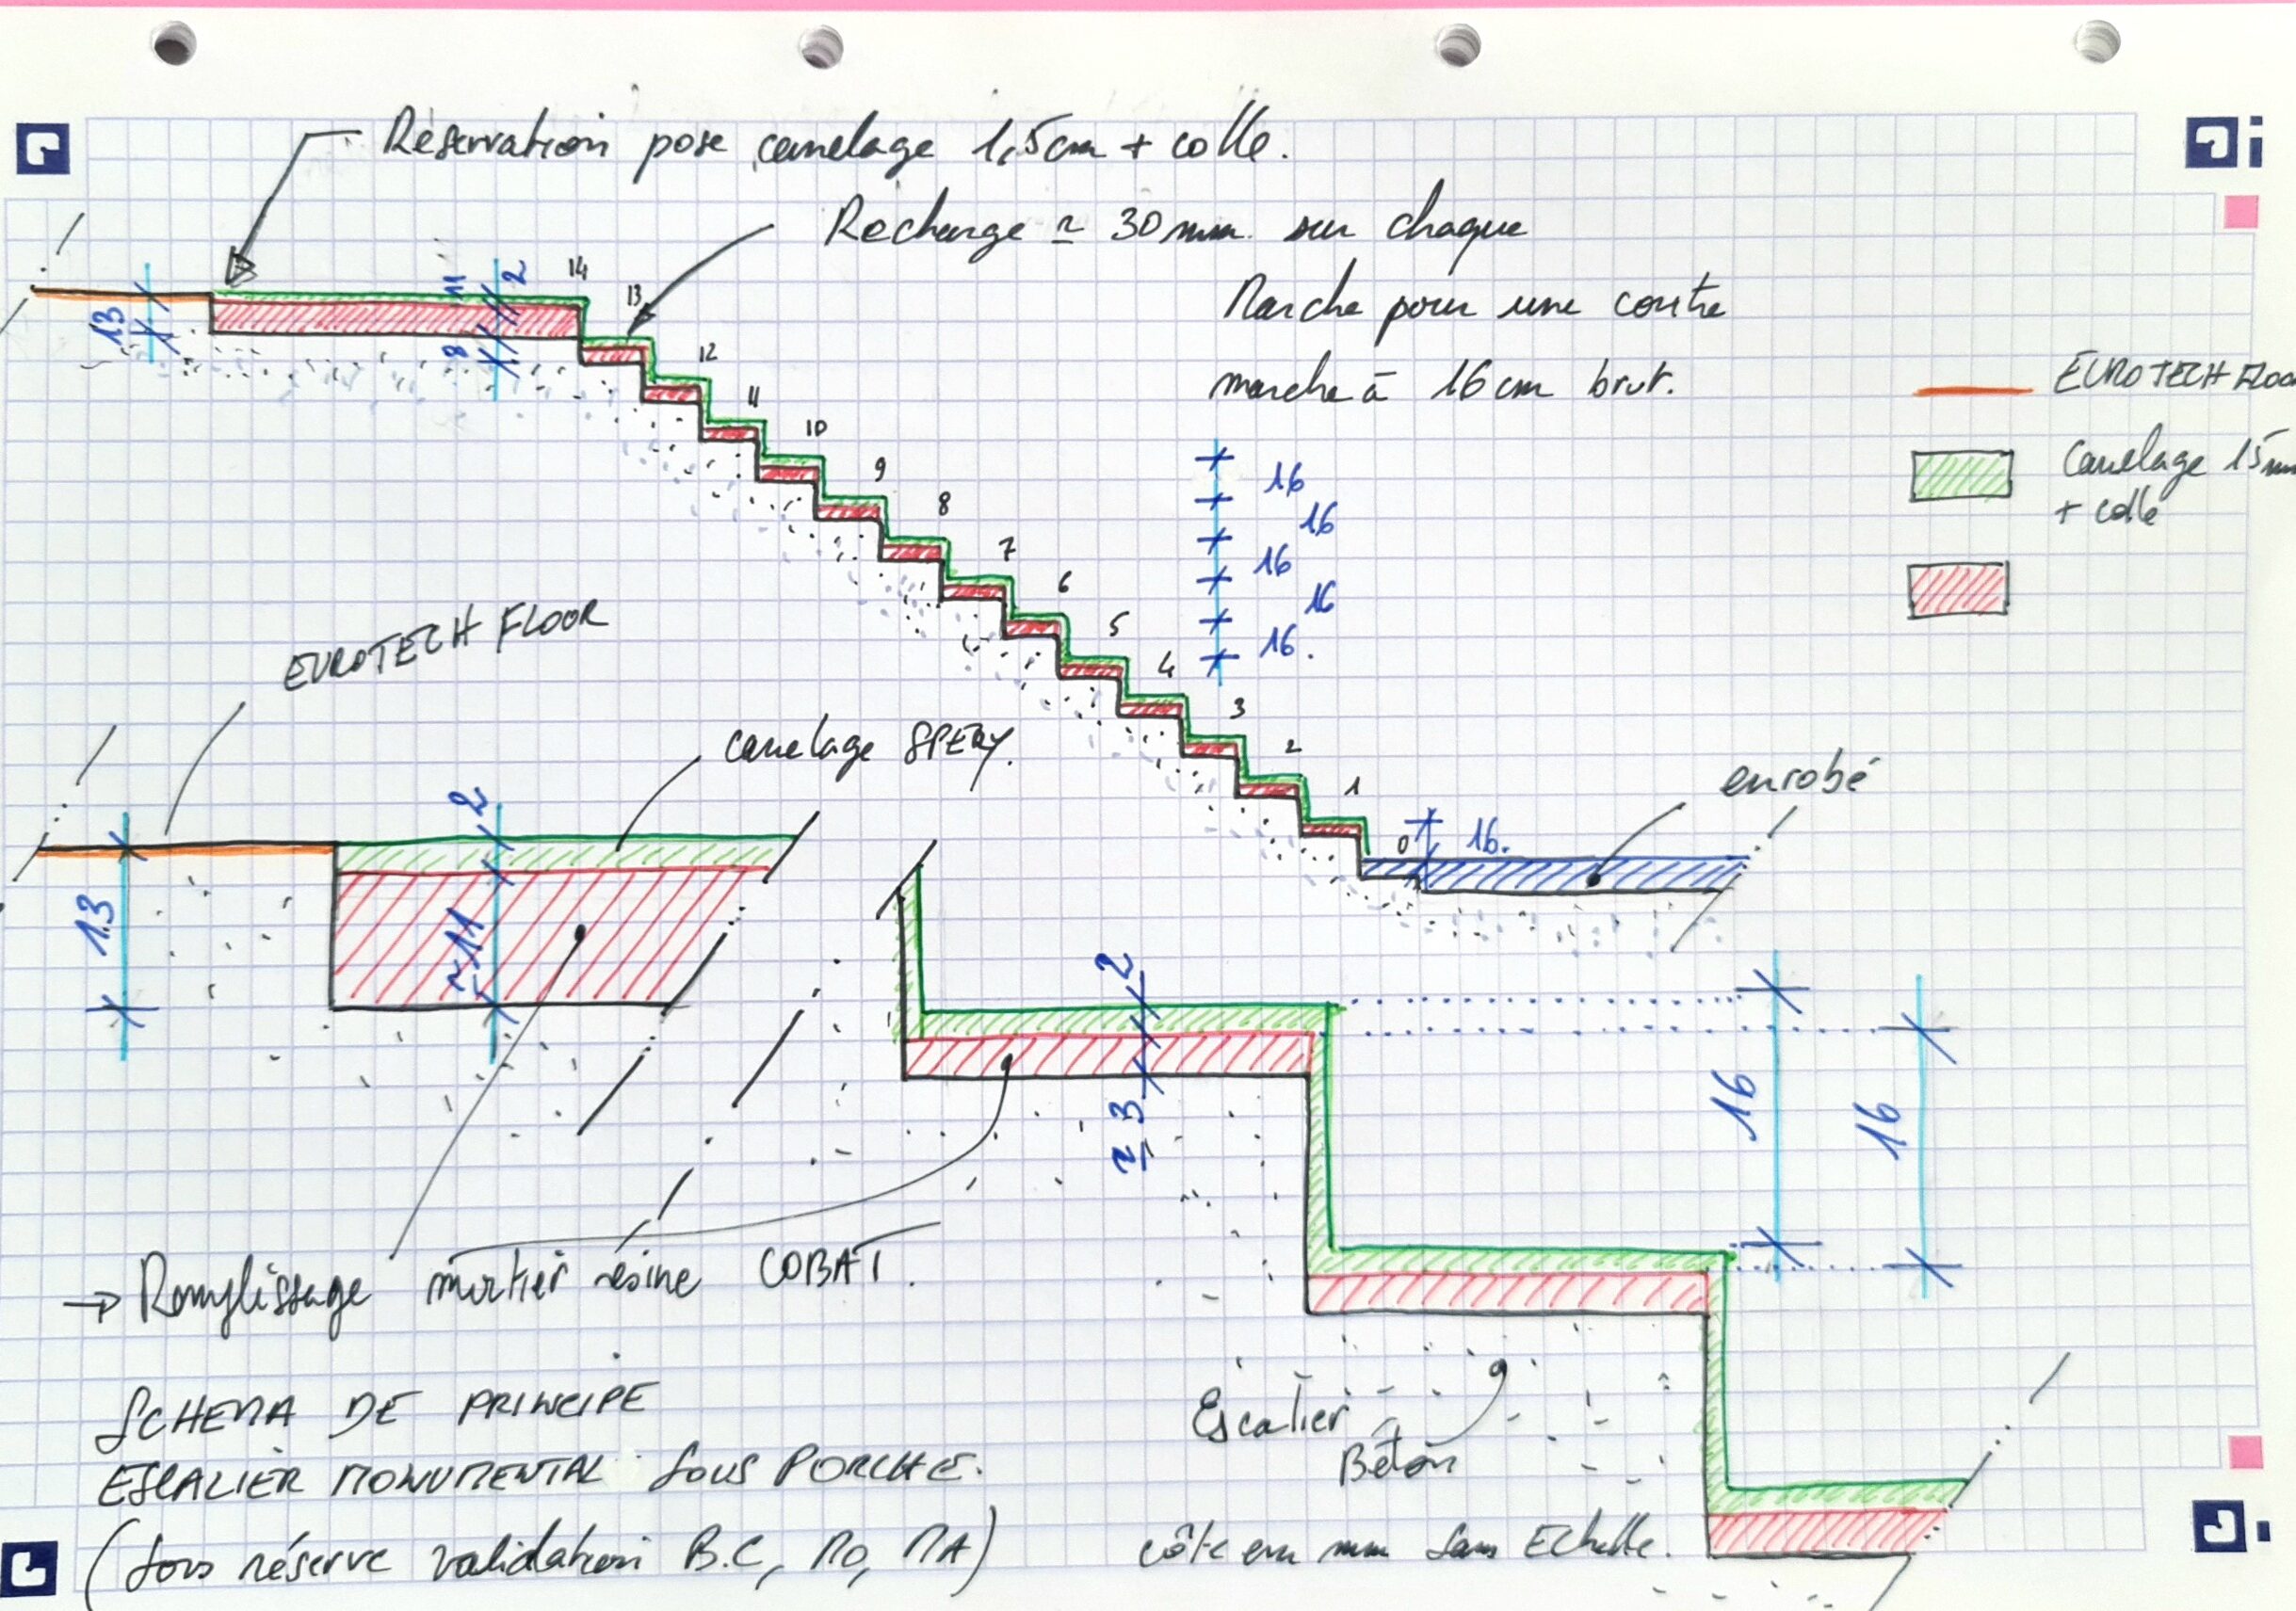 Réservation pose carrelage 1,5cm + colle.
Recharge ≃ 30 mm sur chaque
Marche pour une contre
marche à 16 cm brut.
EUROTECH FLOOR
Carrelage 15 mm
+ colle
13
11
2
8
14
13
12
11
10
9
8
7
6
5
4
3
2
1
0
16
16
16
16
16.
16.
enrobé
EUROTECH FLOOR
carrelage SPERY.
13
2
≃11
2
≃ 3
16
16
→ Remplissage mortier résine COBAT.
Escalier
Béton
SCHEMA DE PRINCIPE
ESCALIER MONUMENTAL SOUS PORCHE.
(sous réserve validation B.C, MO, MA)
côte en mm sans Echelle.